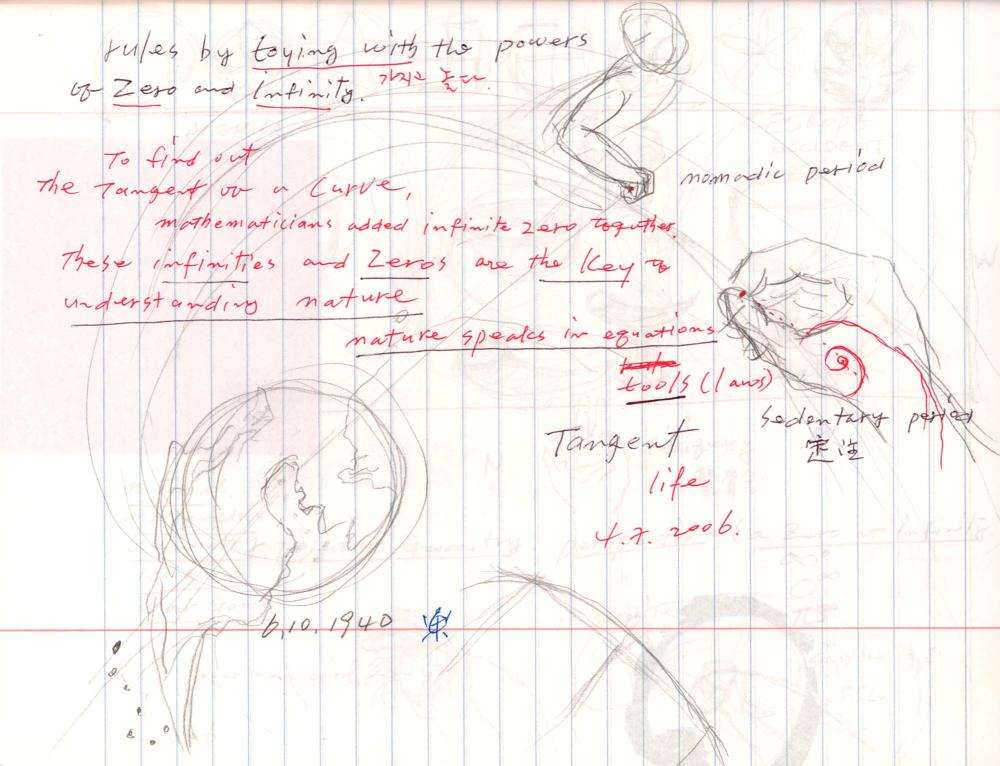 rules by toying with the powers
of Zero and infinity. 가지고 놀다.
To find out
The Tangent on a Curve,
mathematicians added infinite zero together.
These infinities and Zeros are the Key to
understanding nature
nature speaks in equations
tools (laws)
Tangent
life
4.7.2006.
nomadic period
Sedentary period
定住
6.10.1940